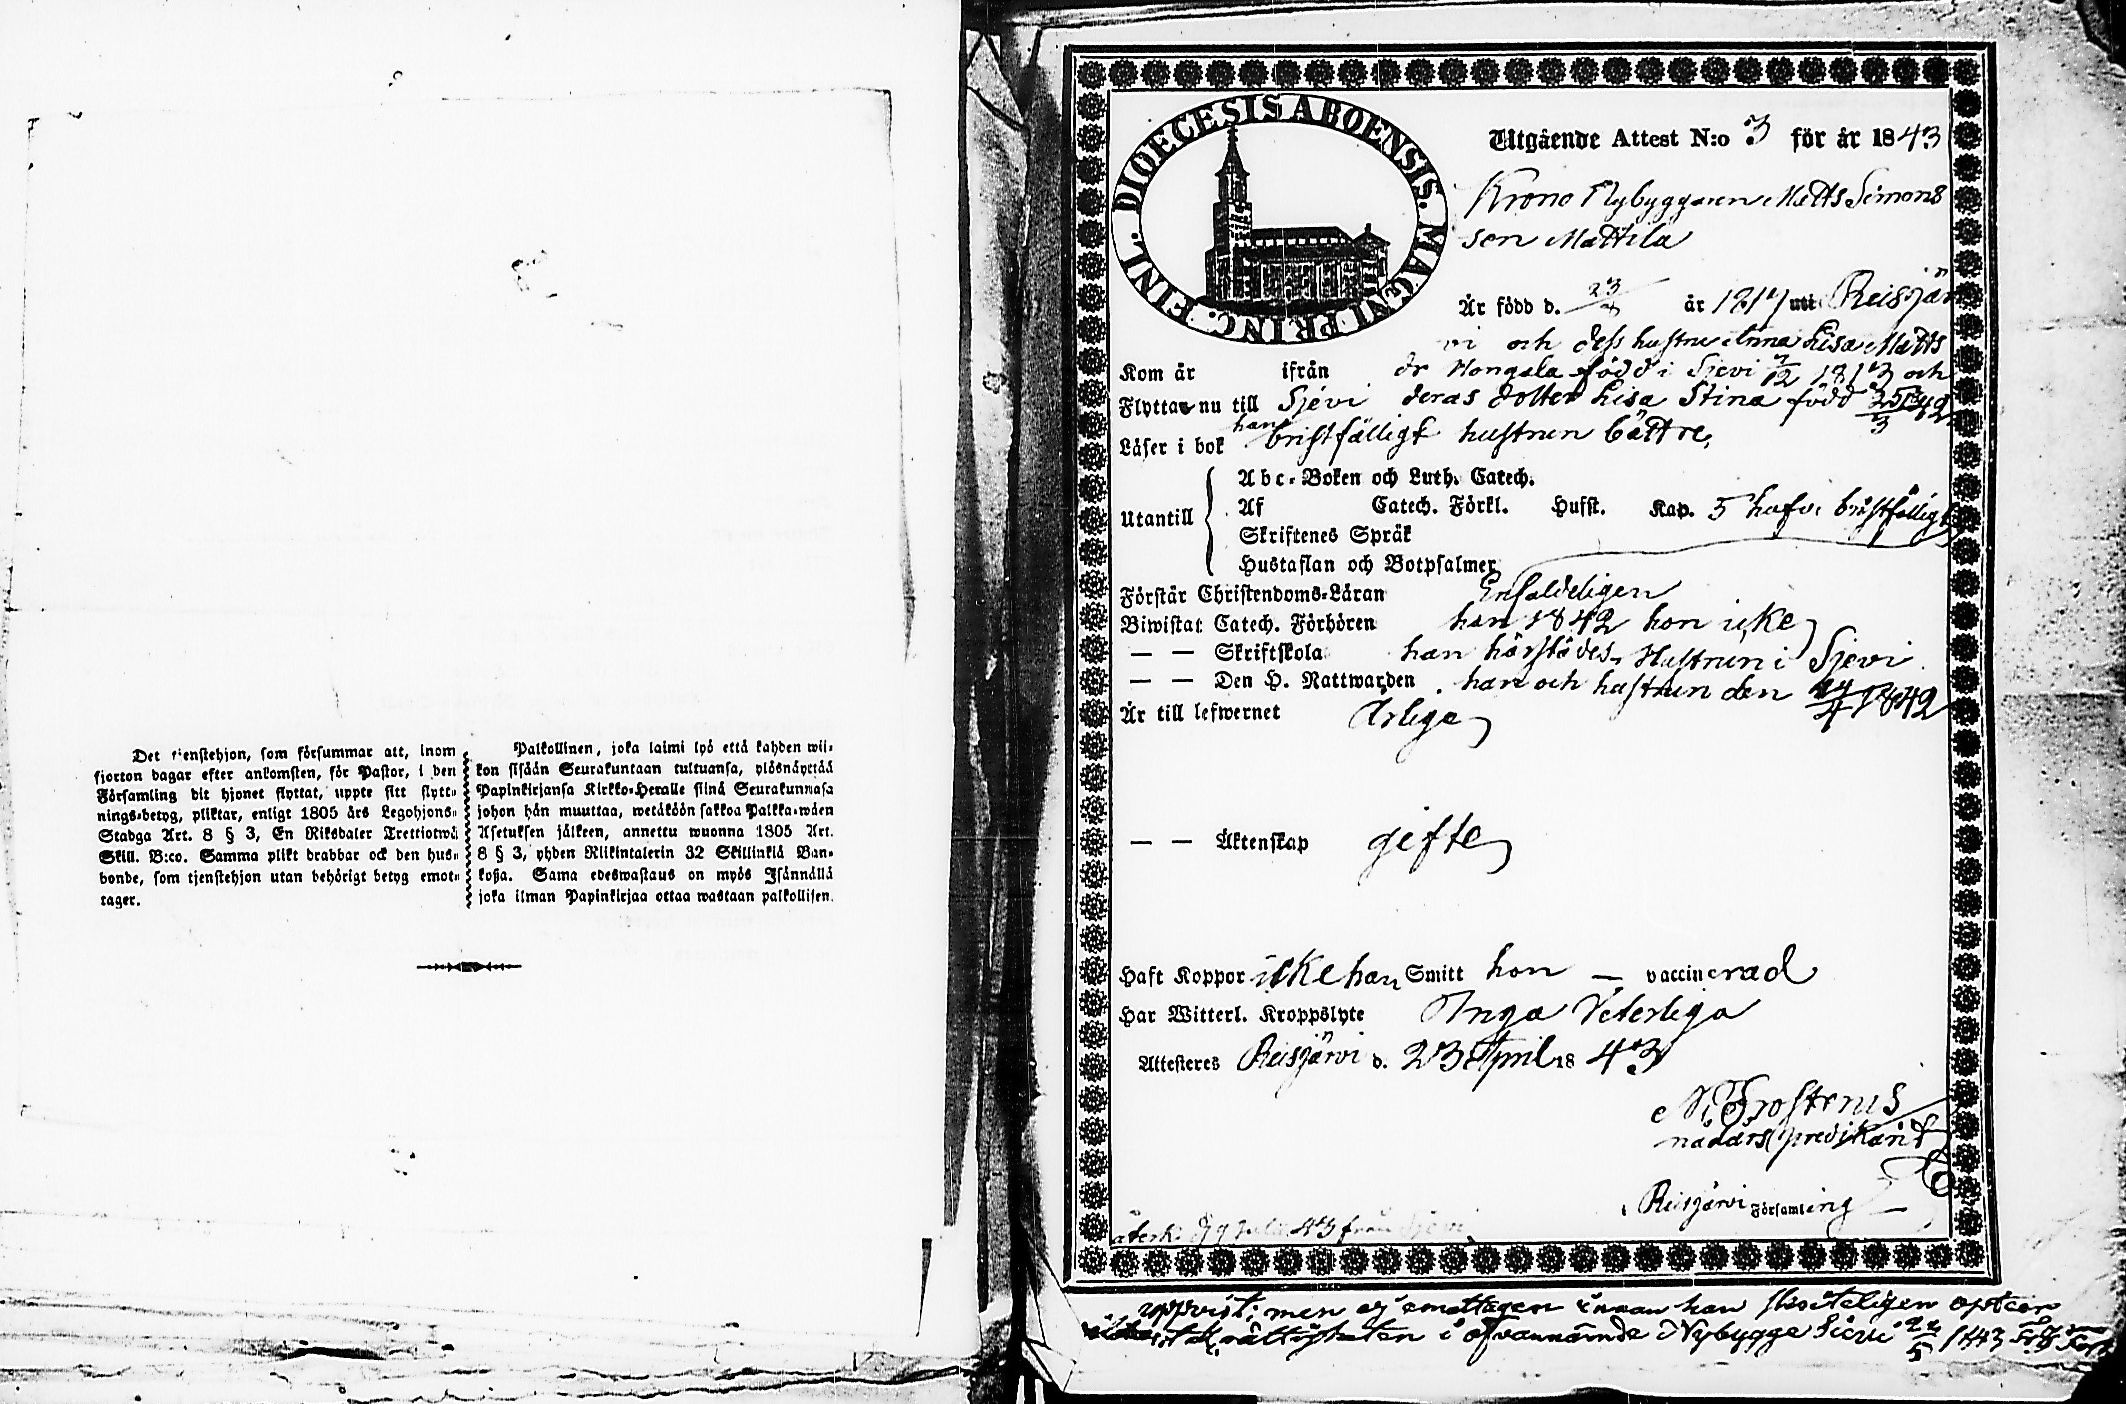 Det tjenstehjon, som försummar att, inom
fjorton dagar efter ankomsten, för Pastor, i den
Församling dit hjonet flyttat, uppte sitt flytt-
nings-betyg, pliktar, enligt 1805 års Legohjons-
Stadga Art. 8 § 3, En Riksdaler Trettiotwå
Skill. B:co. Samma plikt drabbar ock den hus-
bonde, som tjenstehjon utan behörigt betyg emot-
tager.
Palkollinen, joka laimi lyö että kahden wii-
kon sisään Seurakuntaan tultuansa, ylösnäyttää
Papinkirjansa Kirkko-Herralle siinä Seurakunnasa
johon hän muuttaa, wetäköön sakkoa Palkka-wäen
Asetuksen jälkeen, annettu wuonna 1805 Art.
8 § 3, yhden Riikintalerin 32 Skillinkiä Ban-
koßa. Sama edeswastaus on myös Isännällä
joka ilman Papinkirjaa ottaa wastaan palkollisen.
DIOECESIS ABOENSIS. MAGNI PRINC. FINL.
Utgående Attest N:o 3 för år 1843
Krono Nybyggaren Matts Simons
son Mattila
Är född d. 23 år 1817 uti Reisjär
vi och dess hustru Anna Lisa Matts
Kom år ifrån dr Hongala född i Sievi 12 1813 och
Flyttar nu till Sjevi deras dotter Lisa Stina född 25/3 42
Läser i bok han bristfälligt hustrun bättre,
Utantill
Abc-Boken och Luth. Catech.
Af Catech. Förkl. Hufst. Kap. 5 hufv. bristfälligt
Skriftenes Språk
Hustaflan och Botpsalmer
Förstår Christendoms-Läran Enfaldeligen
Biwistat Catech. Förhören han 1842 hon icke
— — Skriftskola han härstädes, Hustrun i Sjevi
— — Den H. Nattwarden han och hustrun den 1842
Är till lefwernet Ärliga
— — Äktenskap gifte
Haft Koppor icke han Smitt hon — vaccinerad
Har Witterl. Kroppslyte Inga Veterliga
Attesteres Reisjärvi d. 23 April 1843
N. Frosterus
nådårs predikant
i Reisjärvi Församling
återk. d 9 Juli 43 från Sjevi
uppvist; men ej emottagen innan han skriteligen
rättigheten i ofvannämnde Nybygge Sievi 22/5 1843